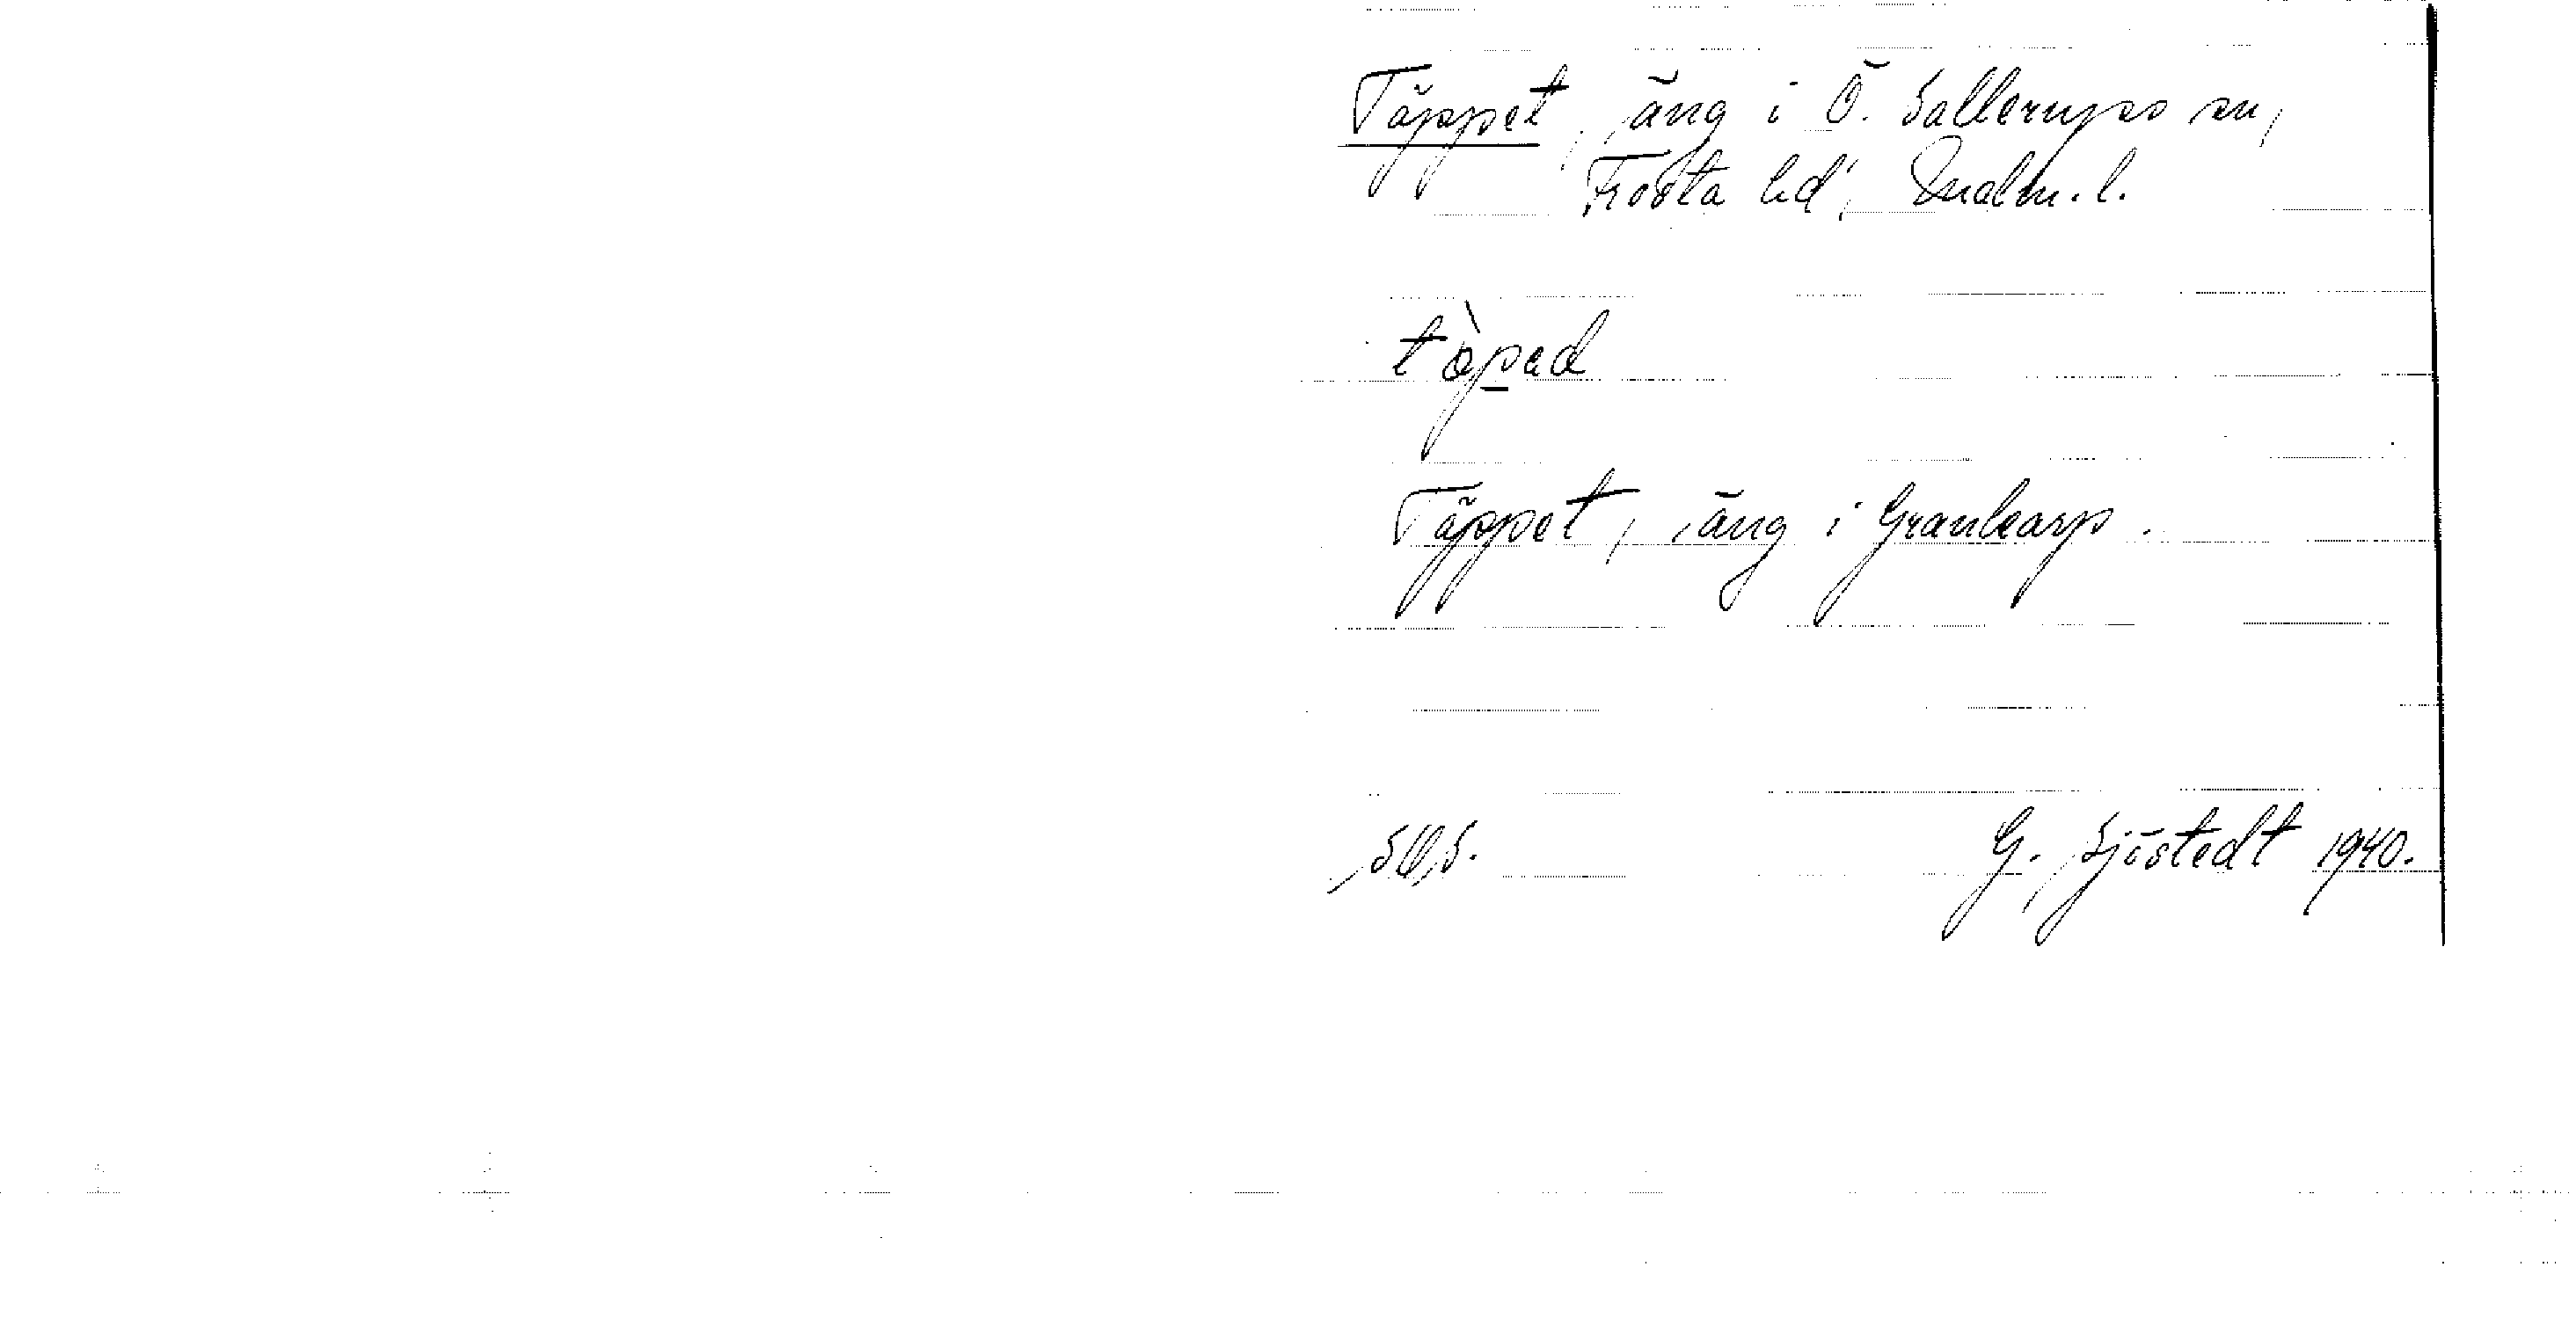 Täppet, äng i Ö. Sallerups sn,
Frosta hd, Malm. l.
tàped
Täppet, äng i Grankarp.
G. Sjöstedt 1940.